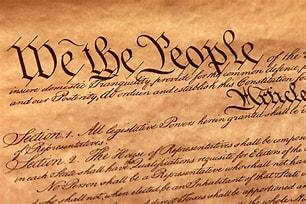 We the People of the
insure domestic Tranquility, provide for the common defence,
and our Posterity, do ordain and establish this Constitution
Article
Section 1. All legislative Powers herein granted shall be
of Representatives.
Section 2. The House of Representatives shall be comp
in each State shall have the Qualifications requisite for Electors of the
No Person shall be a Representative who shall not have
who shall not, when elected, be an Inhabitant of that State